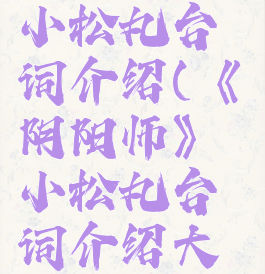 小松丸台
词介绍(《
阴阳师》
小松丸台
词介绍大